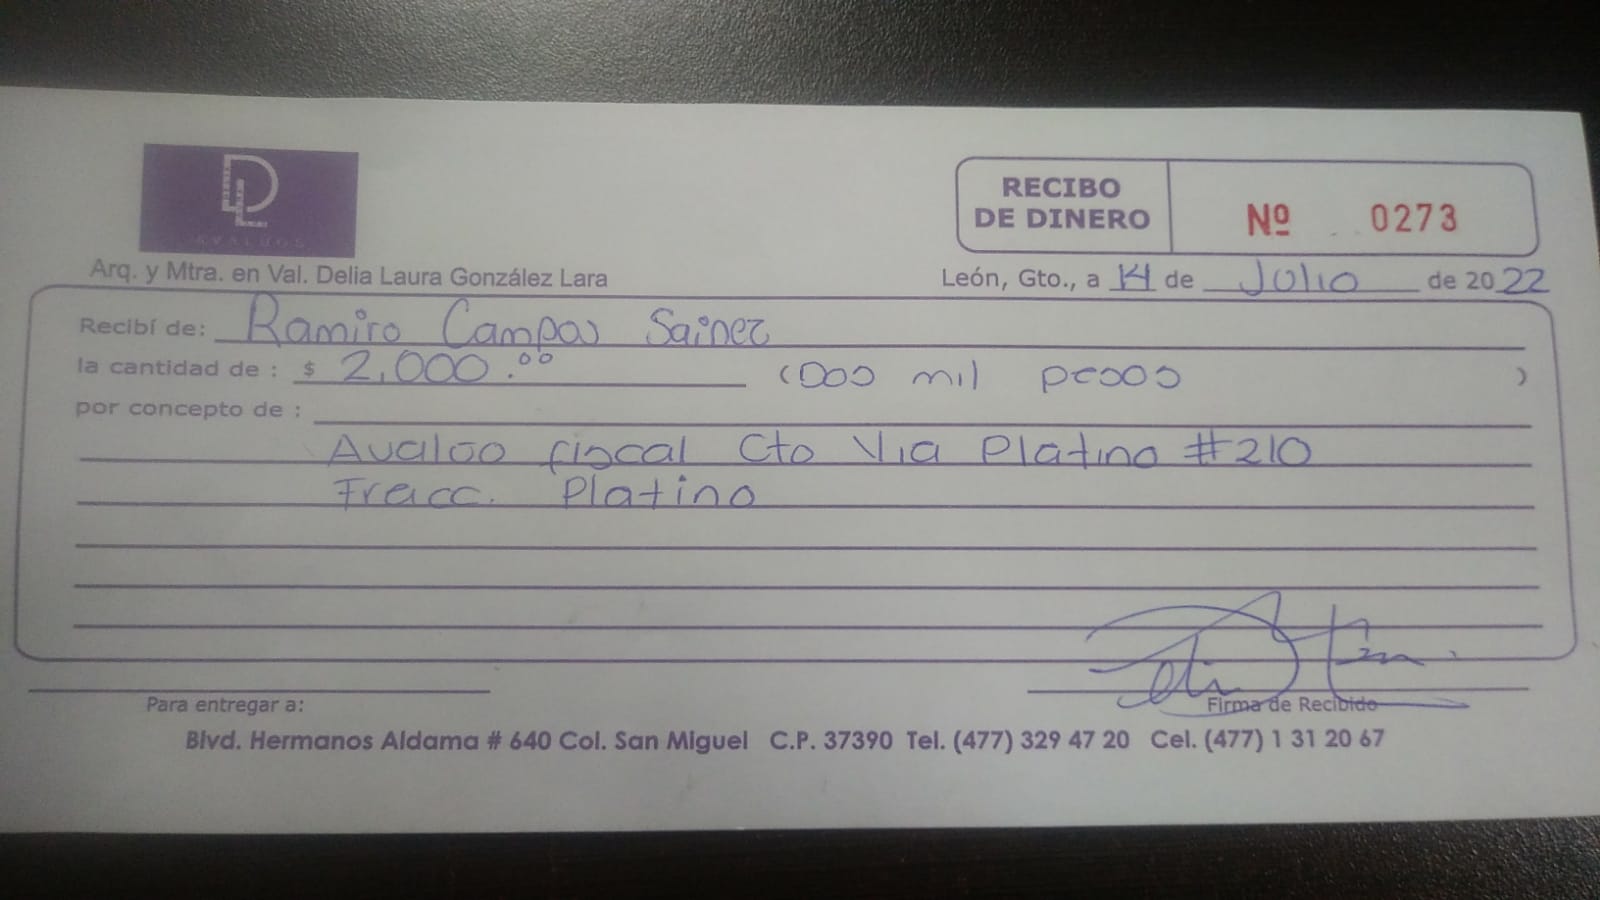 DL
AVALUOS
RECIBO
DE DINERO
Nº 0273
Arq. y Mtra. en Val. Delia Laura González Lara
León, Gto., a 14 de Julio de 2022
Recibí de: Ramiro Campos Sainez
la cantidad de : $ 2,000.00 (Dos mil pesos )
por concepto de :
Avaluo fiscal Cto Via Platino #210
Fracc. Platino
Para entregar a:
Firma de Recibido
Blvd. Hermanos Aldama # 640 Col. San Miguel C.P. 37390 Tel. (477) 329 47 20 Cel. (477) 1 31 20 67